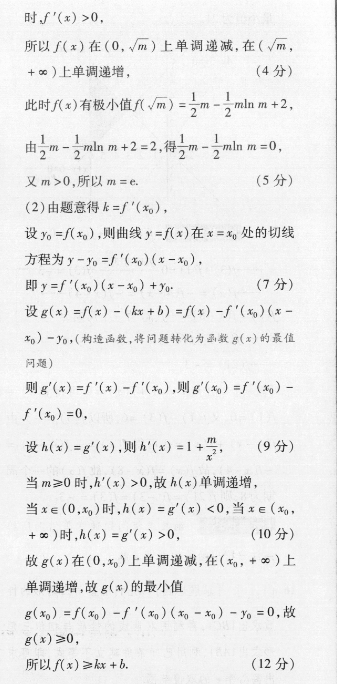 时,f′(x)>0,
所以f(x)在(0,√m)上单调递减,在(√m,
+∞)上单调递增, (4分)
此时f(x)有极小值f(√m)=1/2m-1/2mln m+2,
由1/2m-1/2mln m+2=2,得1/2m-1/2mln m=0,
又m>0,所以m=e. (5分)
(2)由题意得k=f′(x₀),
设y₀=f(x₀),则曲线y=f(x)在x=x₀处的切线
方程为y-y₀=f′(x₀)(x-x₀),
即y=f′(x₀)(x-x₀)+y₀. (7分)
设g(x)=f(x)-(kx+b)=f(x)-f′(x₀)(x-
x₀)-y₀,(构造函数,将问题转化为函数g(x)的最值
问题)
则g′(x)=f′(x)-f′(x₀),则g′(x₀)=f′(x₀)-
f′(x₀)=0,
设h(x)=g′(x),则h′(x)=1+m/x², (9分)
当m≥0时,h′(x)>0,故h(x)单调递增,
当x∈(0,x₀)时,h(x)=g′(x)<0,当x∈(x₀,
+∞)时,h(x)=g′(x)>0, (10分)
故g(x)在(0,x₀)上单调递减,在(x₀,+∞)上
单调递增,故g(x)的最小值
g(x₀)=f(x₀)-f′(x₀)(x₀-x₀)-y₀=0,故
g(x)≥0,
所以f(x)≥kx+b. (12分)